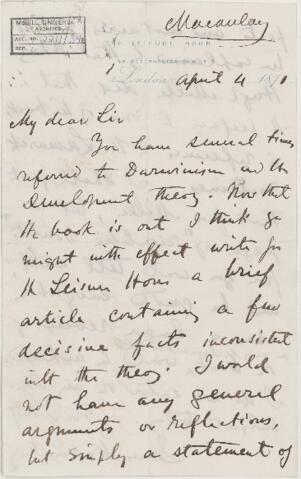 Macaulay
McGILL UNIVERSITY
ARCHIVES
ACC. NO.
REF.
LEISURE HOUR
London April 4 1871
My dear Sir
You have several times
referred to Darwinism and the
Development theory. Now that
the book is out I think you
might with effect write for
the Leisure Hour a brief
article containing a few
decisive facts inconsistent
with the theory. I would
not have any general
arguments or reflections,
but simply a statement of